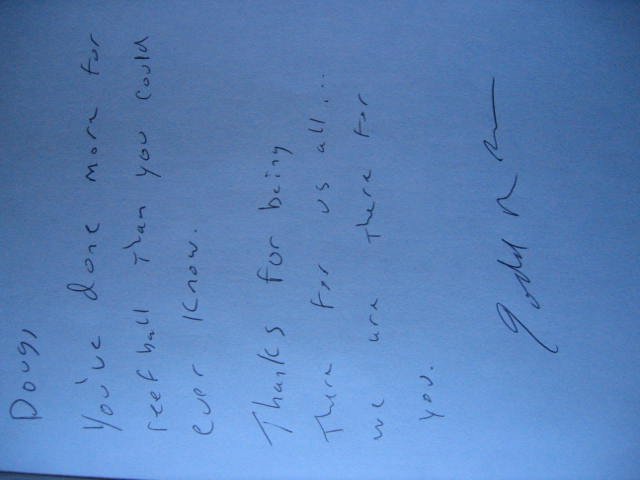 Doug,
You've done more for
reef ball than you could
ever know.
Thanks for being
there for us all...
we are there for
you.
Todd